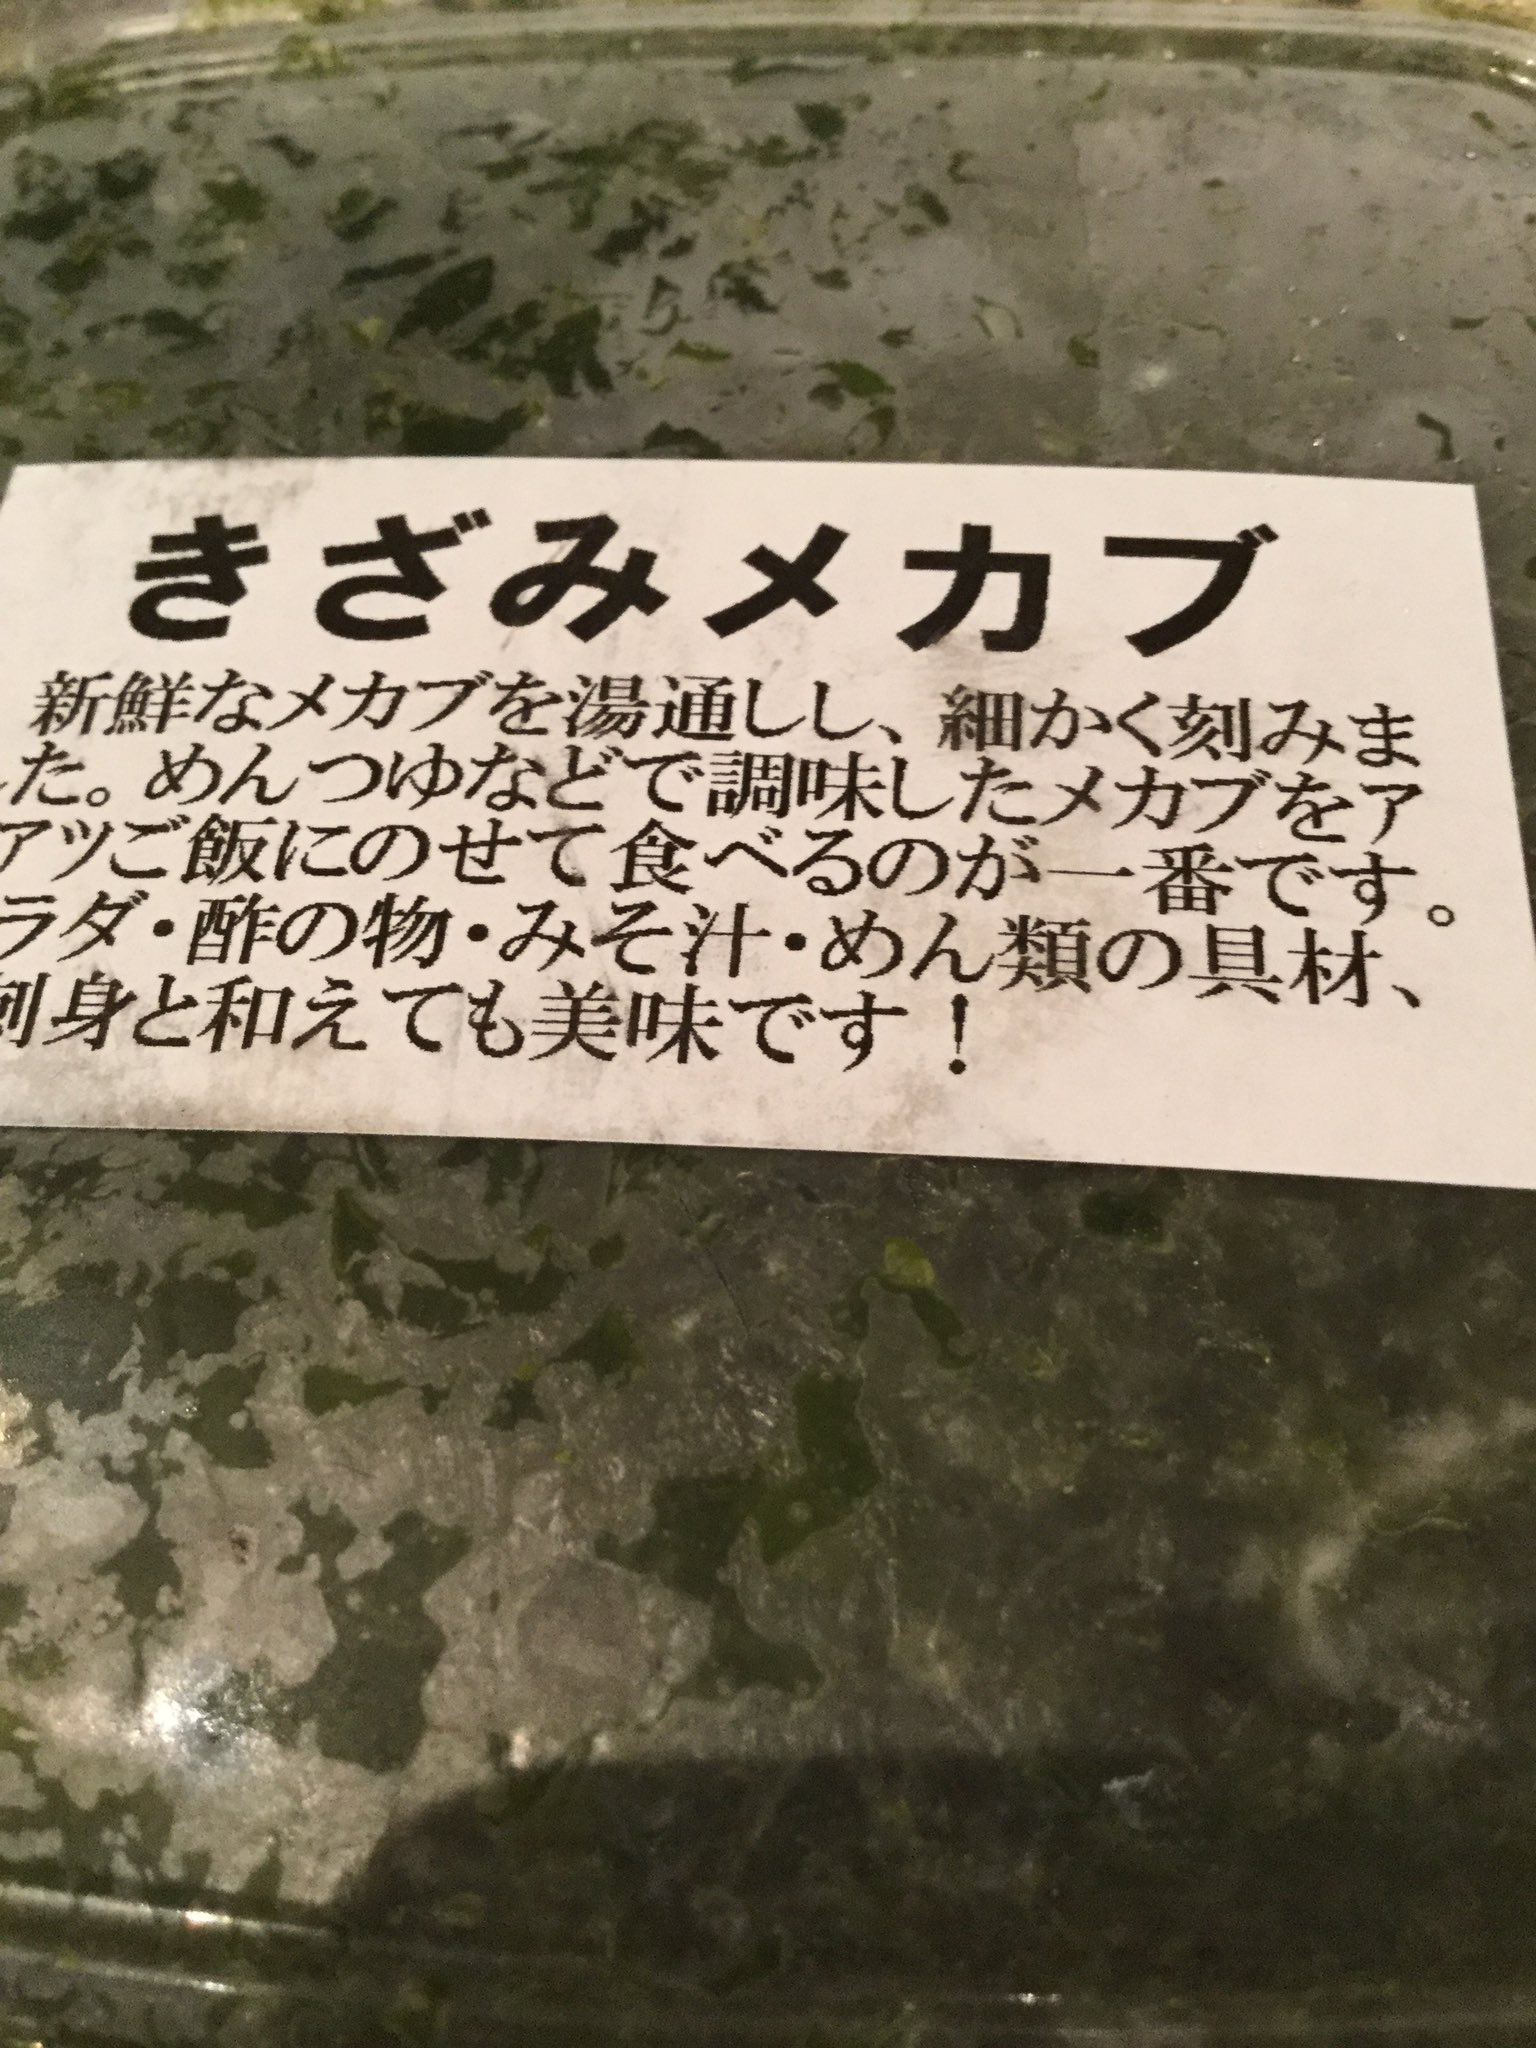 きざみメカブ
新鮮なメカブを湯通しし、細かく刻みま
した。めんつゆなどで調味したメカブをア
アツご飯にのせて食べるのが一番です。
ラダ・酢の物・みそ汁・めん類の具材、
刺身と和えても美味です！